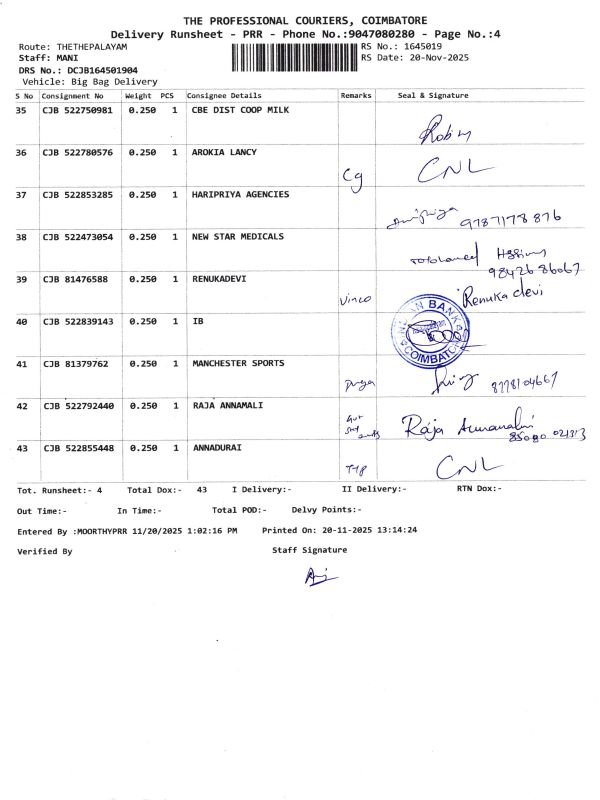 THE PROFESSIONAL COURIERS, COIMBATORE
Delivery Runsheet - PRR - Phone No.:9047080280 - Page No.:4
Route: THETHEPALAYAM RS No.: 1645019
Staff: MANI RS Date: 20-Nov-2025
DRS No.: DCJB164501904
Vehicle: Big Bag Delivery
S No Consignment No Weight PCS Consignee Details Remarks Seal & Signature
35 CJB 522750981 0.250 1 CBE DIST COOP MILK Robin
36 CJB 522780576 0.250 1 AROKIA LANCY Cg CNL
37 CJB 522853285 0.250 1 HARIPRIYA AGENCIES 9787178876
38 CJB 522473054 0.250 1 NEW STAR MEDICALS
9842686067
39 CJB 81476588 0.250 1 RENUKADEVI Vinco Renuka devi
40 CJB 522839143 0.250 1 IB INDIAN BANK COIMBATORE
41 CJB 81379762 0.250 1 MANCHESTER SPORTS 8778104667
42 CJB 522792440 0.250 1 RAJA ANNAMALI Raja Annamalai
43 CJB 522855448 0.250 1 ANNADURAI CNL
Tot. Runsheet:- 4 Total Dox:- 43 I Delivery:- II Delivery:- RTN Dox:-
Out Time:- In Time:- Total POD:- Delvy Points:-
Entered By :MOORTHYPRR 11/20/2025 1:02:16 PM Printed On: 20-11-2025 13:14:24
Verified By Staff Signature